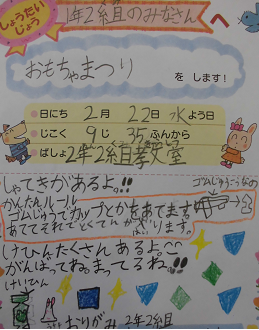 しょうたいじょう
1年2組のみなさんへ
おもちゃまつり
をします!
●日にち 2月 22日 水よう日
●じこく 9じ 35ふんから
●ばしょ 2年2組教室
しゃてきがあるよ!!
かんたんルール
ゴムじゅうでカップとかをあてます。
あててそれでとくてんが
けいひんたくさんあるよ。
がんばってねまってるね!!
けいひん
おりがみ 2年2組